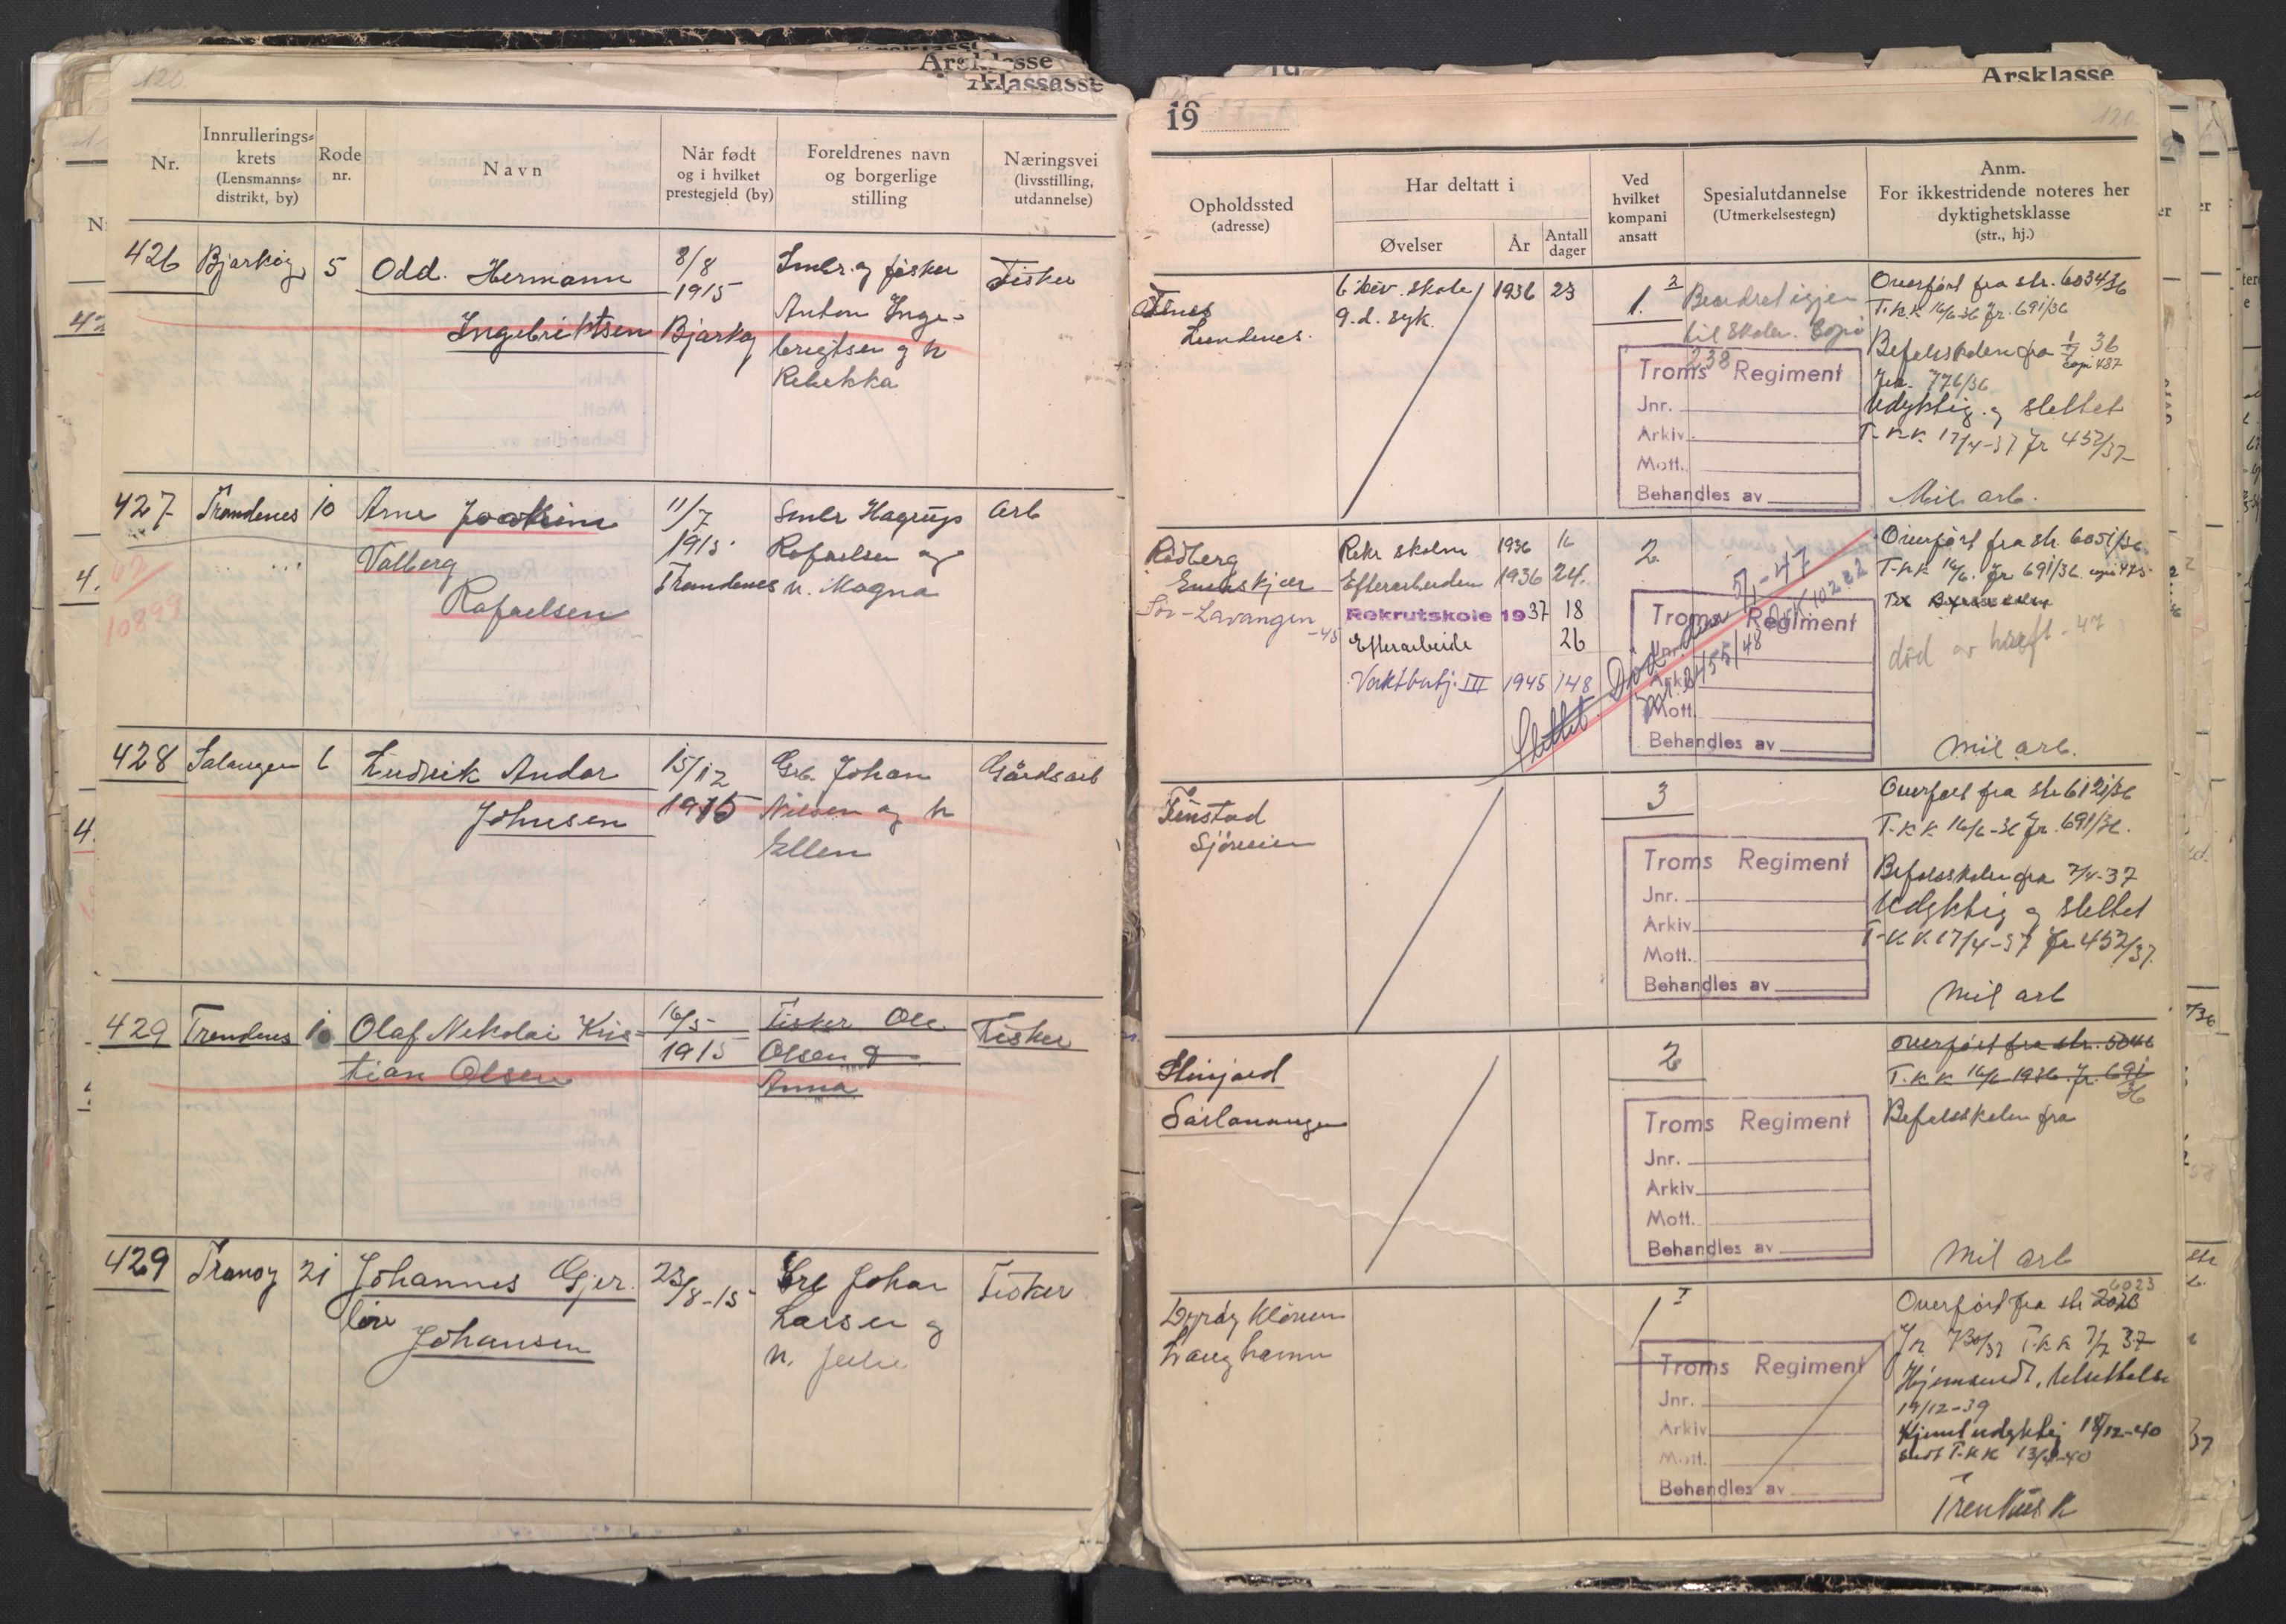 Årsklasse
klassasse
120.
Nr.
Innrullerings-
krets
(Lensmanns-
distrikt, by)
Rode
nr.
Navn
Når født
og i hvilket
prestegjeld (by)
Foreldrenes navn
og borgerlige
stilling
Næringsvei
(livsstilling,
utdannelse)
426 Bjarkøy 5 Odd. Hermann
Ingebriktsen
8/8
1915
Bjarkøy
Smbr. og fisker
Anton Inge-
brigtsen og h
Rebekka
Fisker
427 Trondenes 10 Arne Joakim
Valberg
Rafaelsen
11/7
1915
Trondenes
Smbr Hagrup
Rafaelsen og
h. Magna
Arb
62
10899
428 Salangen 6 Ludvik Andor
Johnsen
15/12
1915
Grb. Johan
Nilsen og h
Ellen
Gårdsarb
429 Trondenes 10 Olaf Nikolai Kris-
tian Olsen
16/5
1915
Fisker Ole
Olsen og
Anna
Fisker
429 Tranøy 21 Johannes Gjer.
løv
Johansen
23/8-15
Johan
Larsen og
h. Julie
Fisker
Årsklasse
19
120
Opholdssted
(adresse)
Har deltatt i
Øvelser
År
Antall
dager
Ved
hvilket
kompani
ansatt
Spesialutdannelse
(Utmerkelsestegn)
Anm.
For ikkestridende noteres her
dyktighetsklasse
(str., hj.)
Lundenes.
skole 1936 23
9. d. syk.
1. 2
Beordret igjen
til skolen. Copi
238
Troms Regiment
Jnr.
Arkiv.
Mott.
Behandles av
Overført fra str. 6034/36
T.K.K. 16/6-36 Jr. 691/36
Befalsskolen fra 1/7 36
copi 487
Jr. 776/36
Udyktig og slettet
T.K.K. 17/4-37 Jr 452/37
Mil arb.
Rødberg
Sør-Lavangen -45
Rekr skolen 1936 16
Efterarbeiden 1936 24.
Rekrutskole 1937 18
Efterarbeide 26
Vaktbatj. III 1945 148
2
Slettet Død
5/1-47
Troms Regiment
Jnr.
Arkiv
Mott.
Behandles av
Overført fra str. 6051/36.
T.K.K 16/6. Jr 691/36 copi 475
død av
47
Mil arb.
Finstad
Sjøveien
3
Troms Regiment
Jnr.
Arkiv
Mott.
Behandles av
Overført fra str 6121/36
T.K.K 16/6-36 Jr. 691/36.
Befalsskolen fra 7/4-37
Udyktig og slettet
T-K.K. 17/4-37 Jr 452/37.
Mil arb
Sørlavangen
2
Troms Regiment
Jnr.
Arkiv
Mott.
Behandles av
Overført fra str. 5046
T.K.K 16/6 1936. Jr. 691/36
Befalsskolen fra
Mil arb
Dyrøy Kløven
Langhamn
1 I
Troms Regiment
Jnr.
Arkiv
Mott.
Behandles av
6023
Overført fra str
Jr. 730/37 T.K.K 7/7 37
Hjemsendt, utsettelse
19/12-39
Kjent udyktig 18/12-40
T.K.K